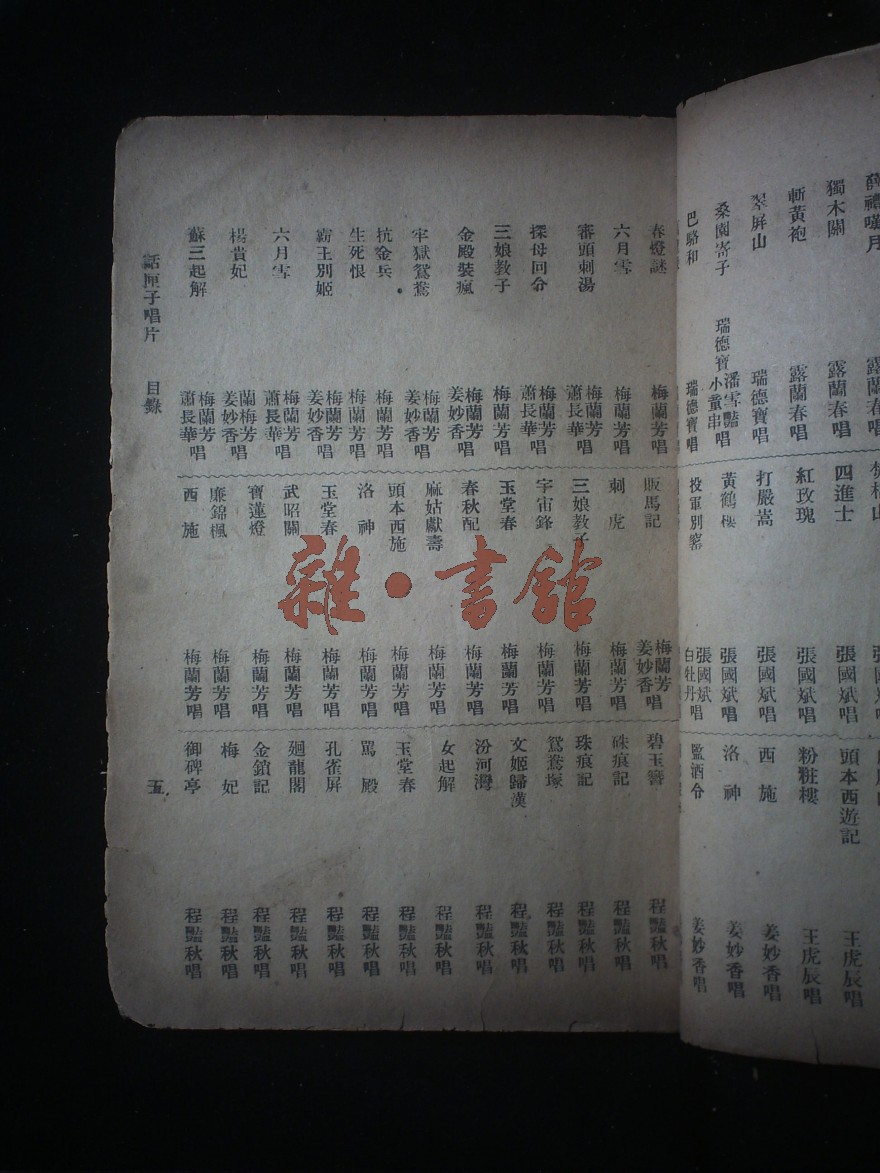 薛禮嘆月 露蘭春唱
獨木關 露蘭春唱
斬黃袍 露蘭春唱
翠屏山 瑞德寶唱
桑園寄子 瑞德寶 潘雪艷 小童串唱
巴駱和 瑞德寶唱
四進士 張國斌唱
紅玫瑰 張國斌唱
打嚴嵩 張國斌唱
黃鶴樓 張國斌唱
投軍別窰 張國斌 白牡丹唱
頭本西遊記 王虎辰唱
粉粧樓 王虎辰唱
西施 姜妙香唱
洛神 姜妙香唱
監酒令 姜妙香唱
春燈謎 梅蘭芳唱
六月雪 梅蘭芳唱
審頭刺湯 梅蘭芳 蕭長華唱
探母回令 梅蘭芳 蕭長華唱
三娘教子 梅蘭芳唱
金殿裝瘋 梅蘭芳 姜妙香唱
牢獄鴛鴦 梅蘭芳 姜妙香唱
抗金兵 梅蘭芳唱
生死恨 梅蘭芳唱
霸王別姬 梅蘭芳 姜妙香唱
六月雪 梅蘭芳 蕭長華唱
楊貴妃 蘭梅芳 姜妙香唱
蘇三起解 梅蘭芳 蕭長華唱
販馬記 梅蘭芳 姜妙香唱
刺虎 梅蘭芳唱
三娘教子 梅蘭芳唱
宇宙鋒 梅蘭芳唱
玉堂春 梅蘭芳唱
春秋配 梅蘭芳唱
麻姑獻壽 梅蘭芳唱
頭本西施 梅蘭芳唱
洛神 梅蘭芳唱
玉堂春 梅蘭芳唱
武昭關 梅蘭芳唱
寶蓮燈 梅蘭芳唱
廉錦楓 梅蘭芳唱
西施 梅蘭芳唱
碧玉簪 程艷秋唱
硃痕記 程艷秋唱
珠痕記 程艷秋唱
鴛鴦塚 程艷秋唱
文姬歸漢 程艷秋唱
汾河灣 程艷秋唱
女起解 程艷秋唱
玉堂春 程艷秋唱
罵殿 程艷秋唱
孔雀屏 程艷秋唱
廻龍閣 程艷秋唱
金鎖記 程艷秋唱
梅妃 程艷秋唱
御碑亭 程艷秋唱
話匣子唱片 目錄 五
雜·書館